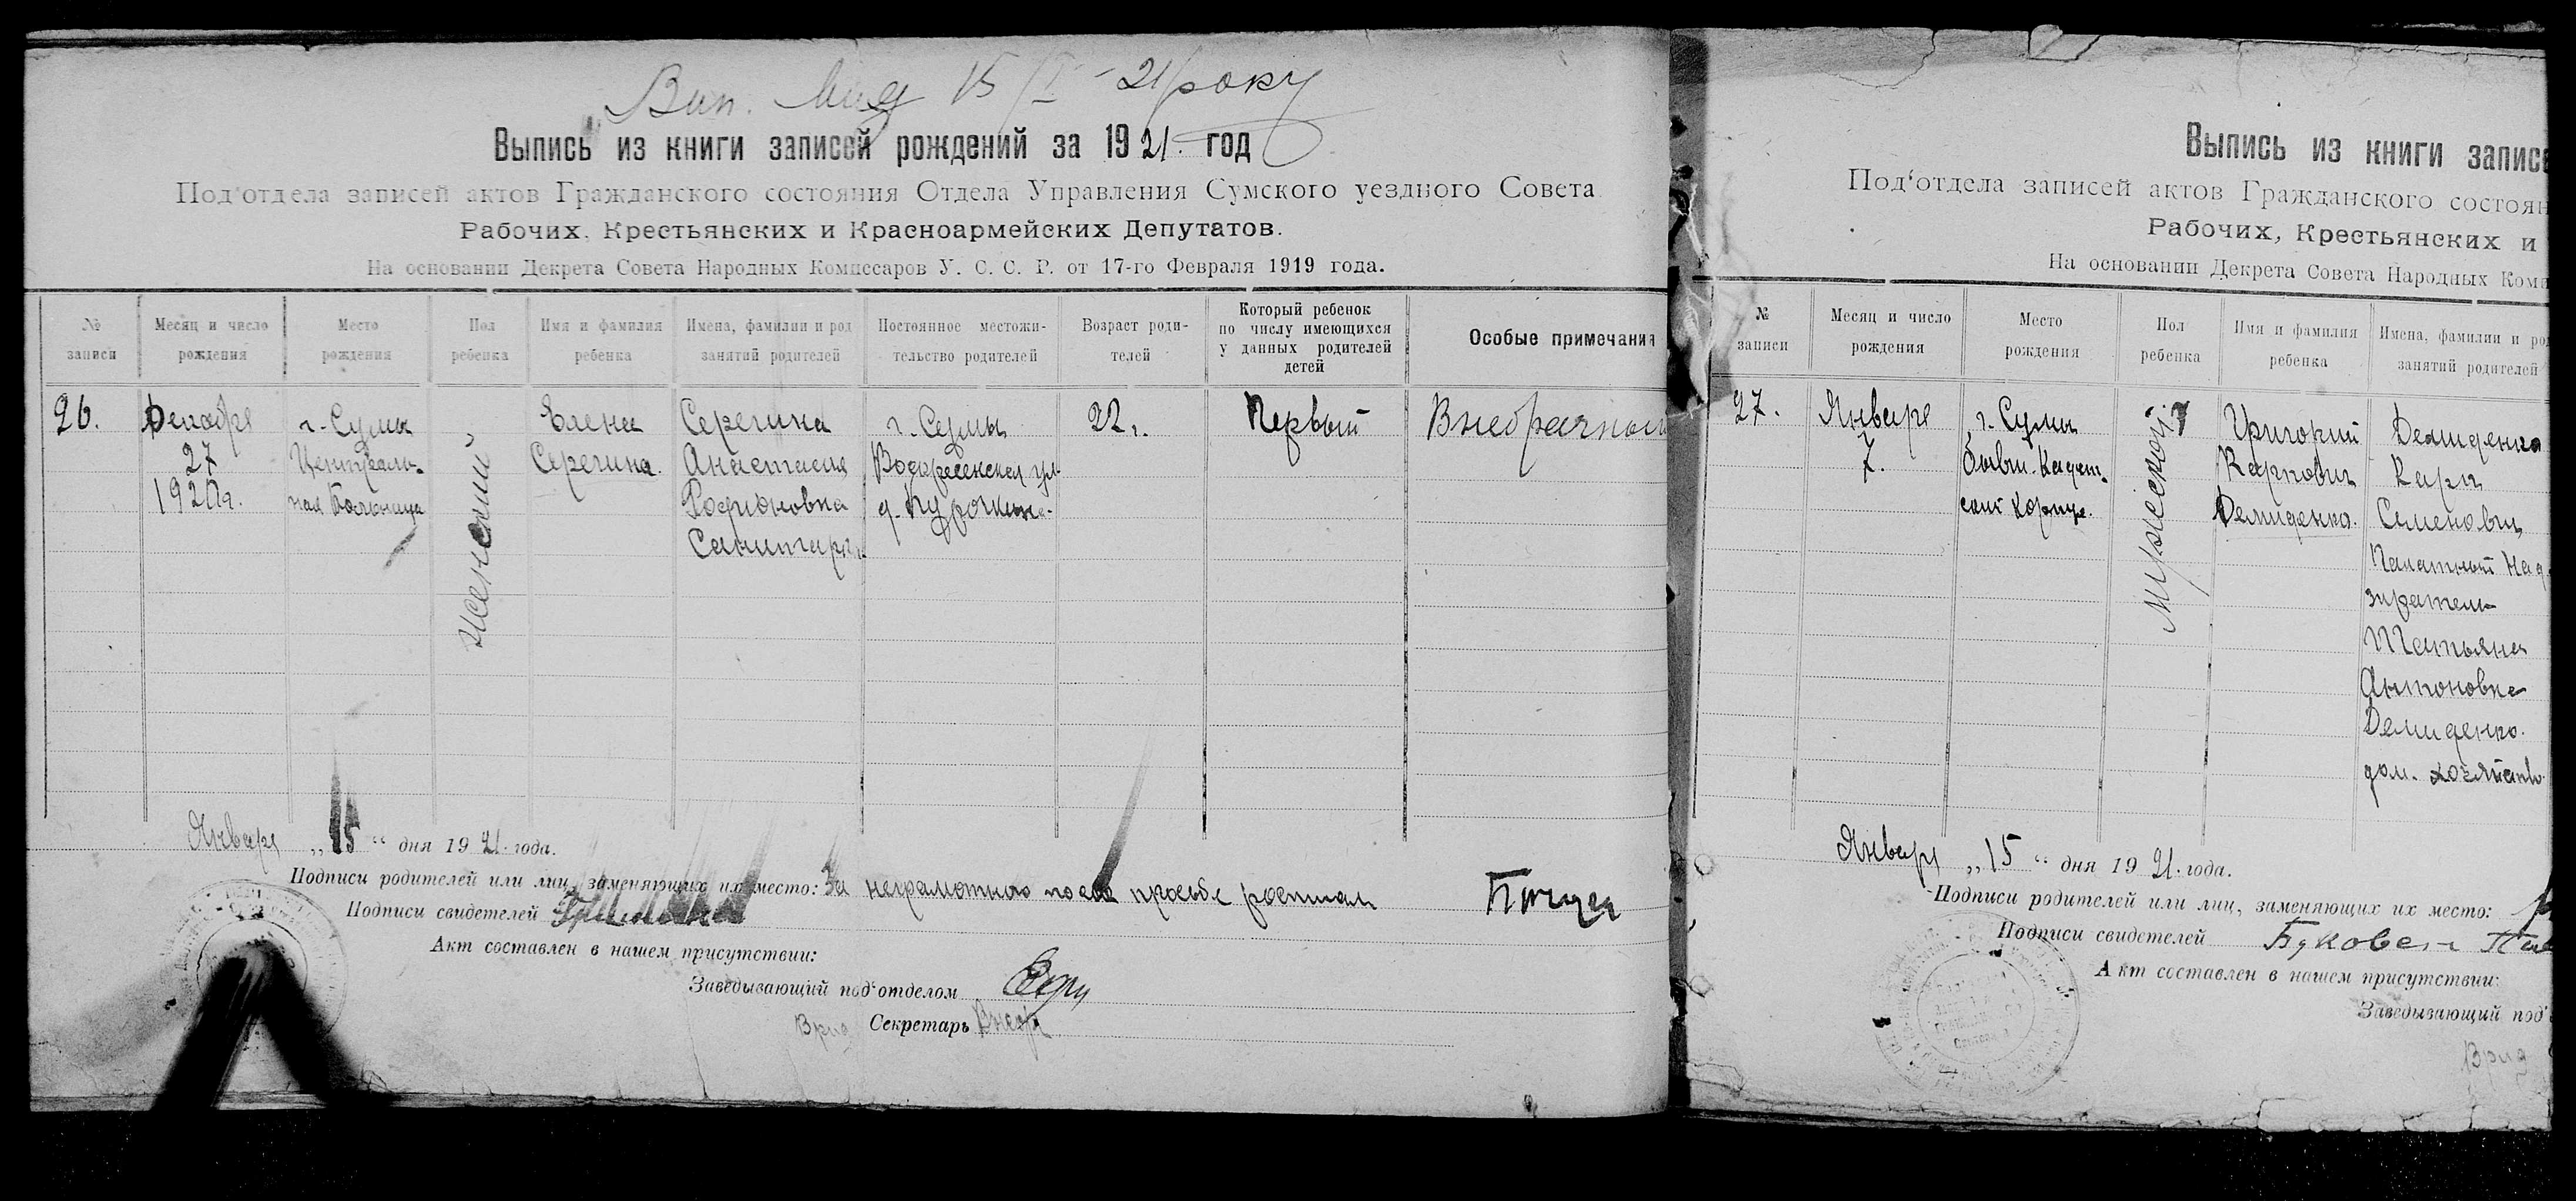 Вип. 15/I - 21 року
Выпись из книги записей рождений за 1921. год
Под'отдела записей актов Гражданского состояния Отдела Управления Сумского уездного Совета
Рабочих, Крестьянских и Красноармейских Депутатов.
На основании Декрета Совета Народных Комиссаров У. С. С. Р. от 17-го Февраля 1919 года.
№ записи
Месяц и число рождения
Место рождения
Пол ребенка
Имя и фамилия ребенка
Имена, фамилии и род занятий родителей
Постоянное местожи-
тельство родителей
Возраст роди-
телей
Который ребенок
по числу имеющихся
у данных родителей
детей
Особые примечания
26.
Декабря
27
1920г.
г. Сумы
Централь-
ная Больница
Женский
Елена
Серегина.
Серегина
Анастасия
Родионовна
Санитарка
г. Сумы
Воскресенская ул.
д. Курочкина.
22 г.
Первый
Внебрачный
Января „15“ дня 1921. года.
Подписи родителей или лиц, заменяющих их место: За неграмотного по его просьбе
Подписи свидетелей
Акт составлен в нашем присутствии:
Заведывающий под'отделом
Врид Секретарь
Выпись из книги записе
Под'отдела записей актов Гражданского состоян
Рабочих, Крестьянских и
На основании Декрета Совета Народных Коми
№ записи
Месяц и число рождения
Место рождения
Пол ребенка
Имя и фамилия ребенка
Имена, фамилии и род
занятий родителей
27.
Января
7.
г. Сумы
бывш. Кадет-
ский Корпус.
Мужской
Григорий
Карпович
Демиденко.
Демиденко
Карп
Семенович
Палатный Над-
зиратель
Татьяна
Антоновна
Демиденко.
дом. хозяйство.
Января „15“ дня 1921. года.
Подписи родителей или лиц, заменяющих их место:
Подписи свидетелей Буковец
Акт составлен в нашем присутствии:
Заведывающий под'
Врид